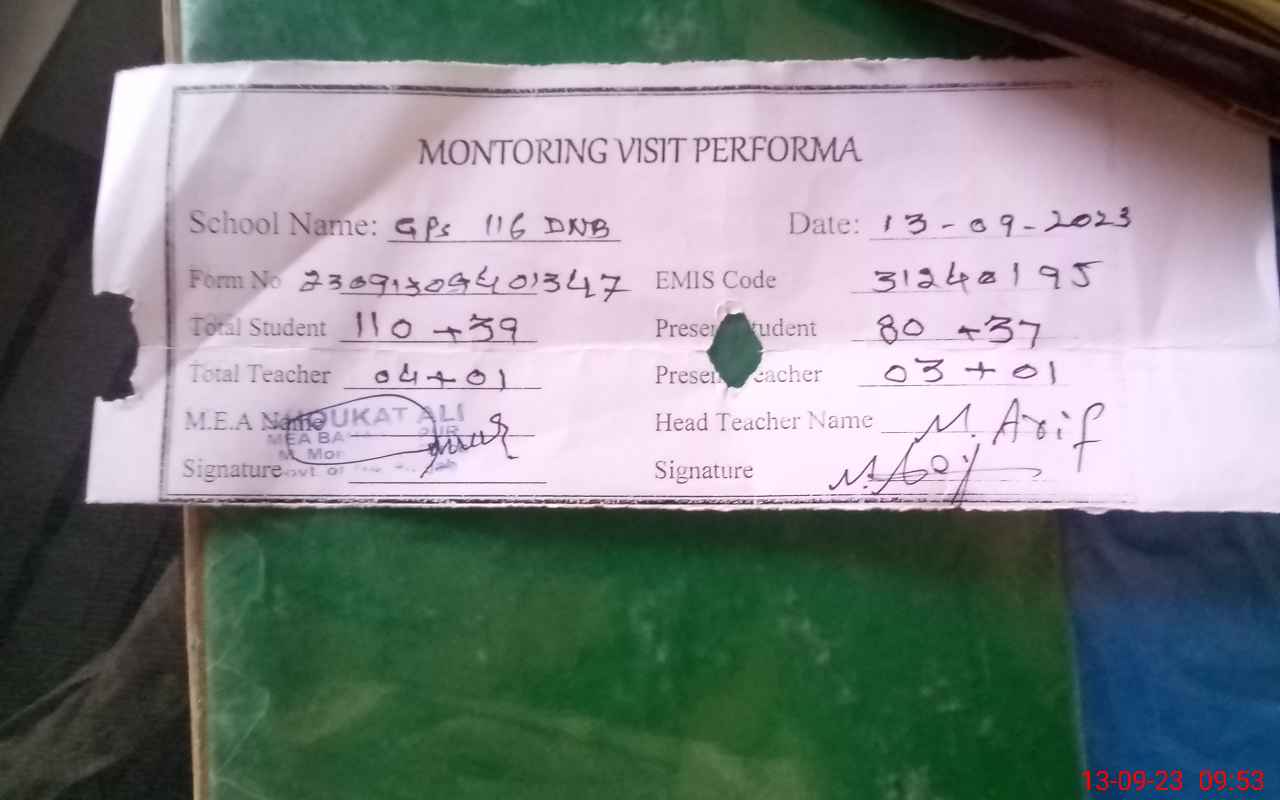 MONTORING VISIT PERFORMA
School Name: GPS 116 DNB Date: 13-09-2023
Form No 230913094401347 EMIS Code 31240195
Total Student 110 +39 Present Student 80 +37
Total Teacher 04+01 Present Teacher 03+01
M.E.A Name Head Teacher Name M. Arif
HOUKAT ALI
MEA BA
Signature Signature
13-09-23 09:53